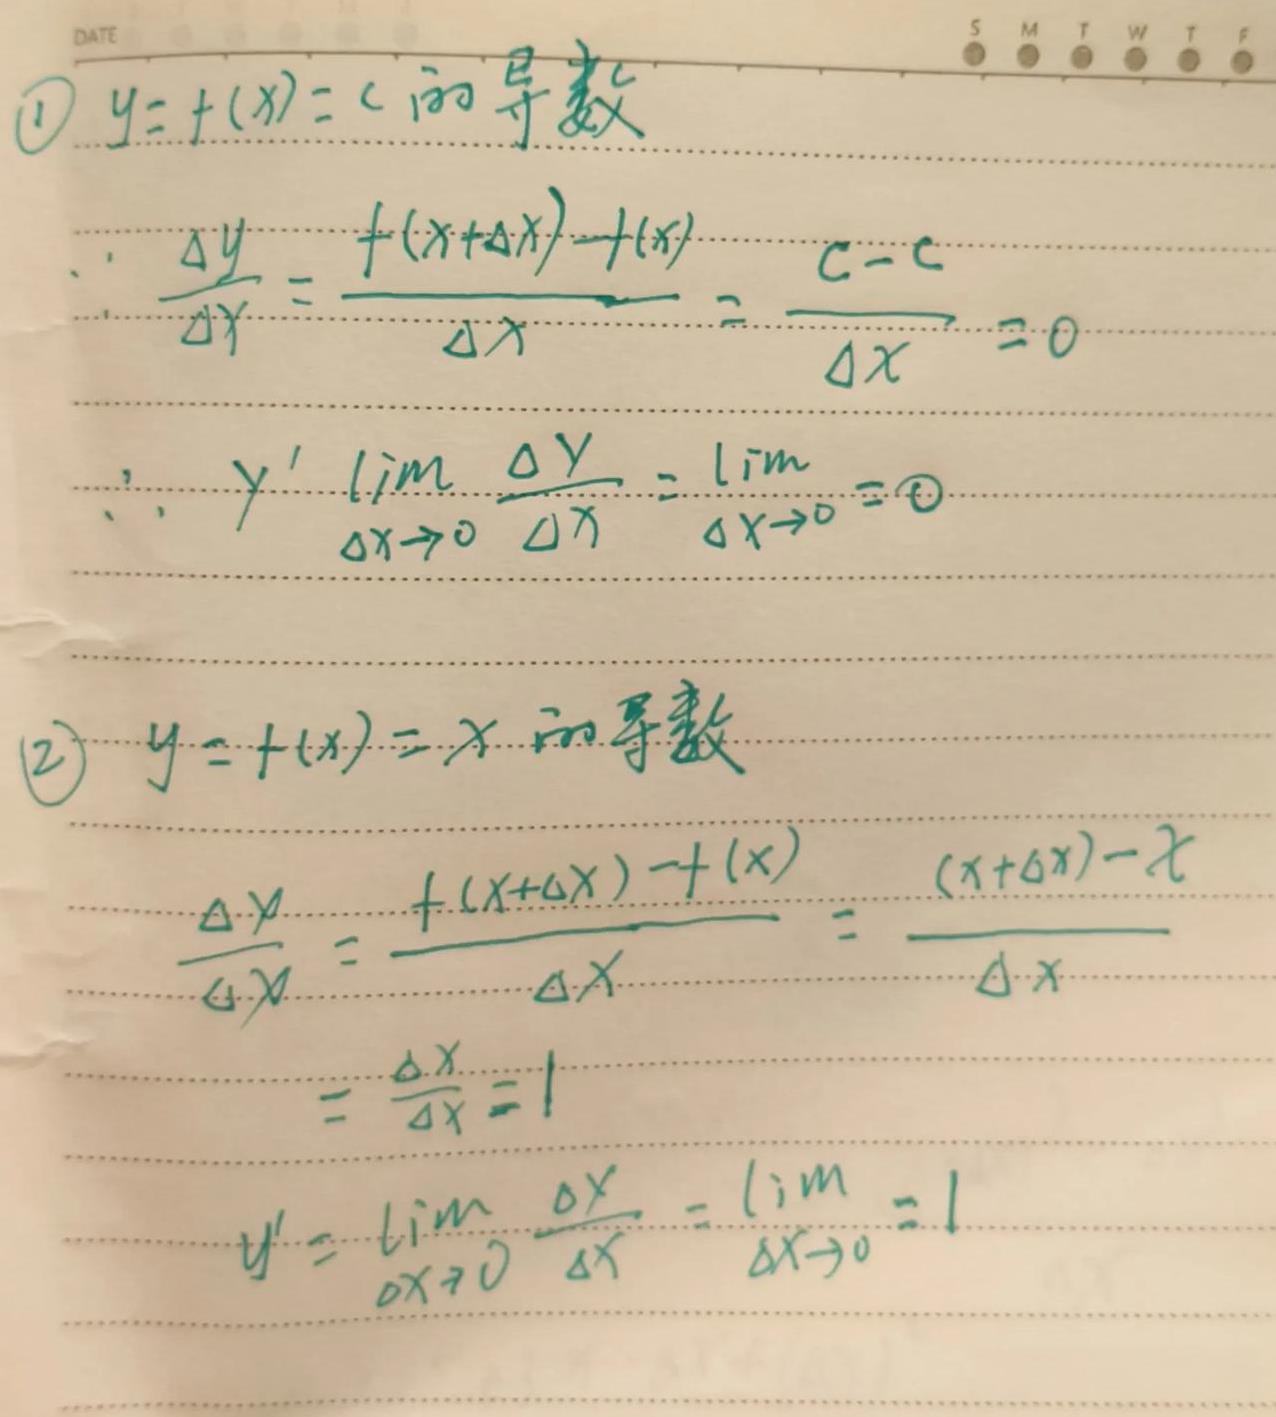 DATE
S M T W T F
① y=f(x)=c的导数
∵ Δy/Δx = (f(x+Δx)-f(x))/Δx = (c-c)/Δx = 0
∴ y' lim Δx→0 Δy/Δx = lim Δx→0 = 0
② y=f(x)=x的导数
Δy/Δx = (f(x+Δx)-f(x))/Δx = ((x+Δx)-x)/Δx
= Δx/Δx = 1
y' = lim Δx→0 Δy/Δx = lim Δx→0 = 1